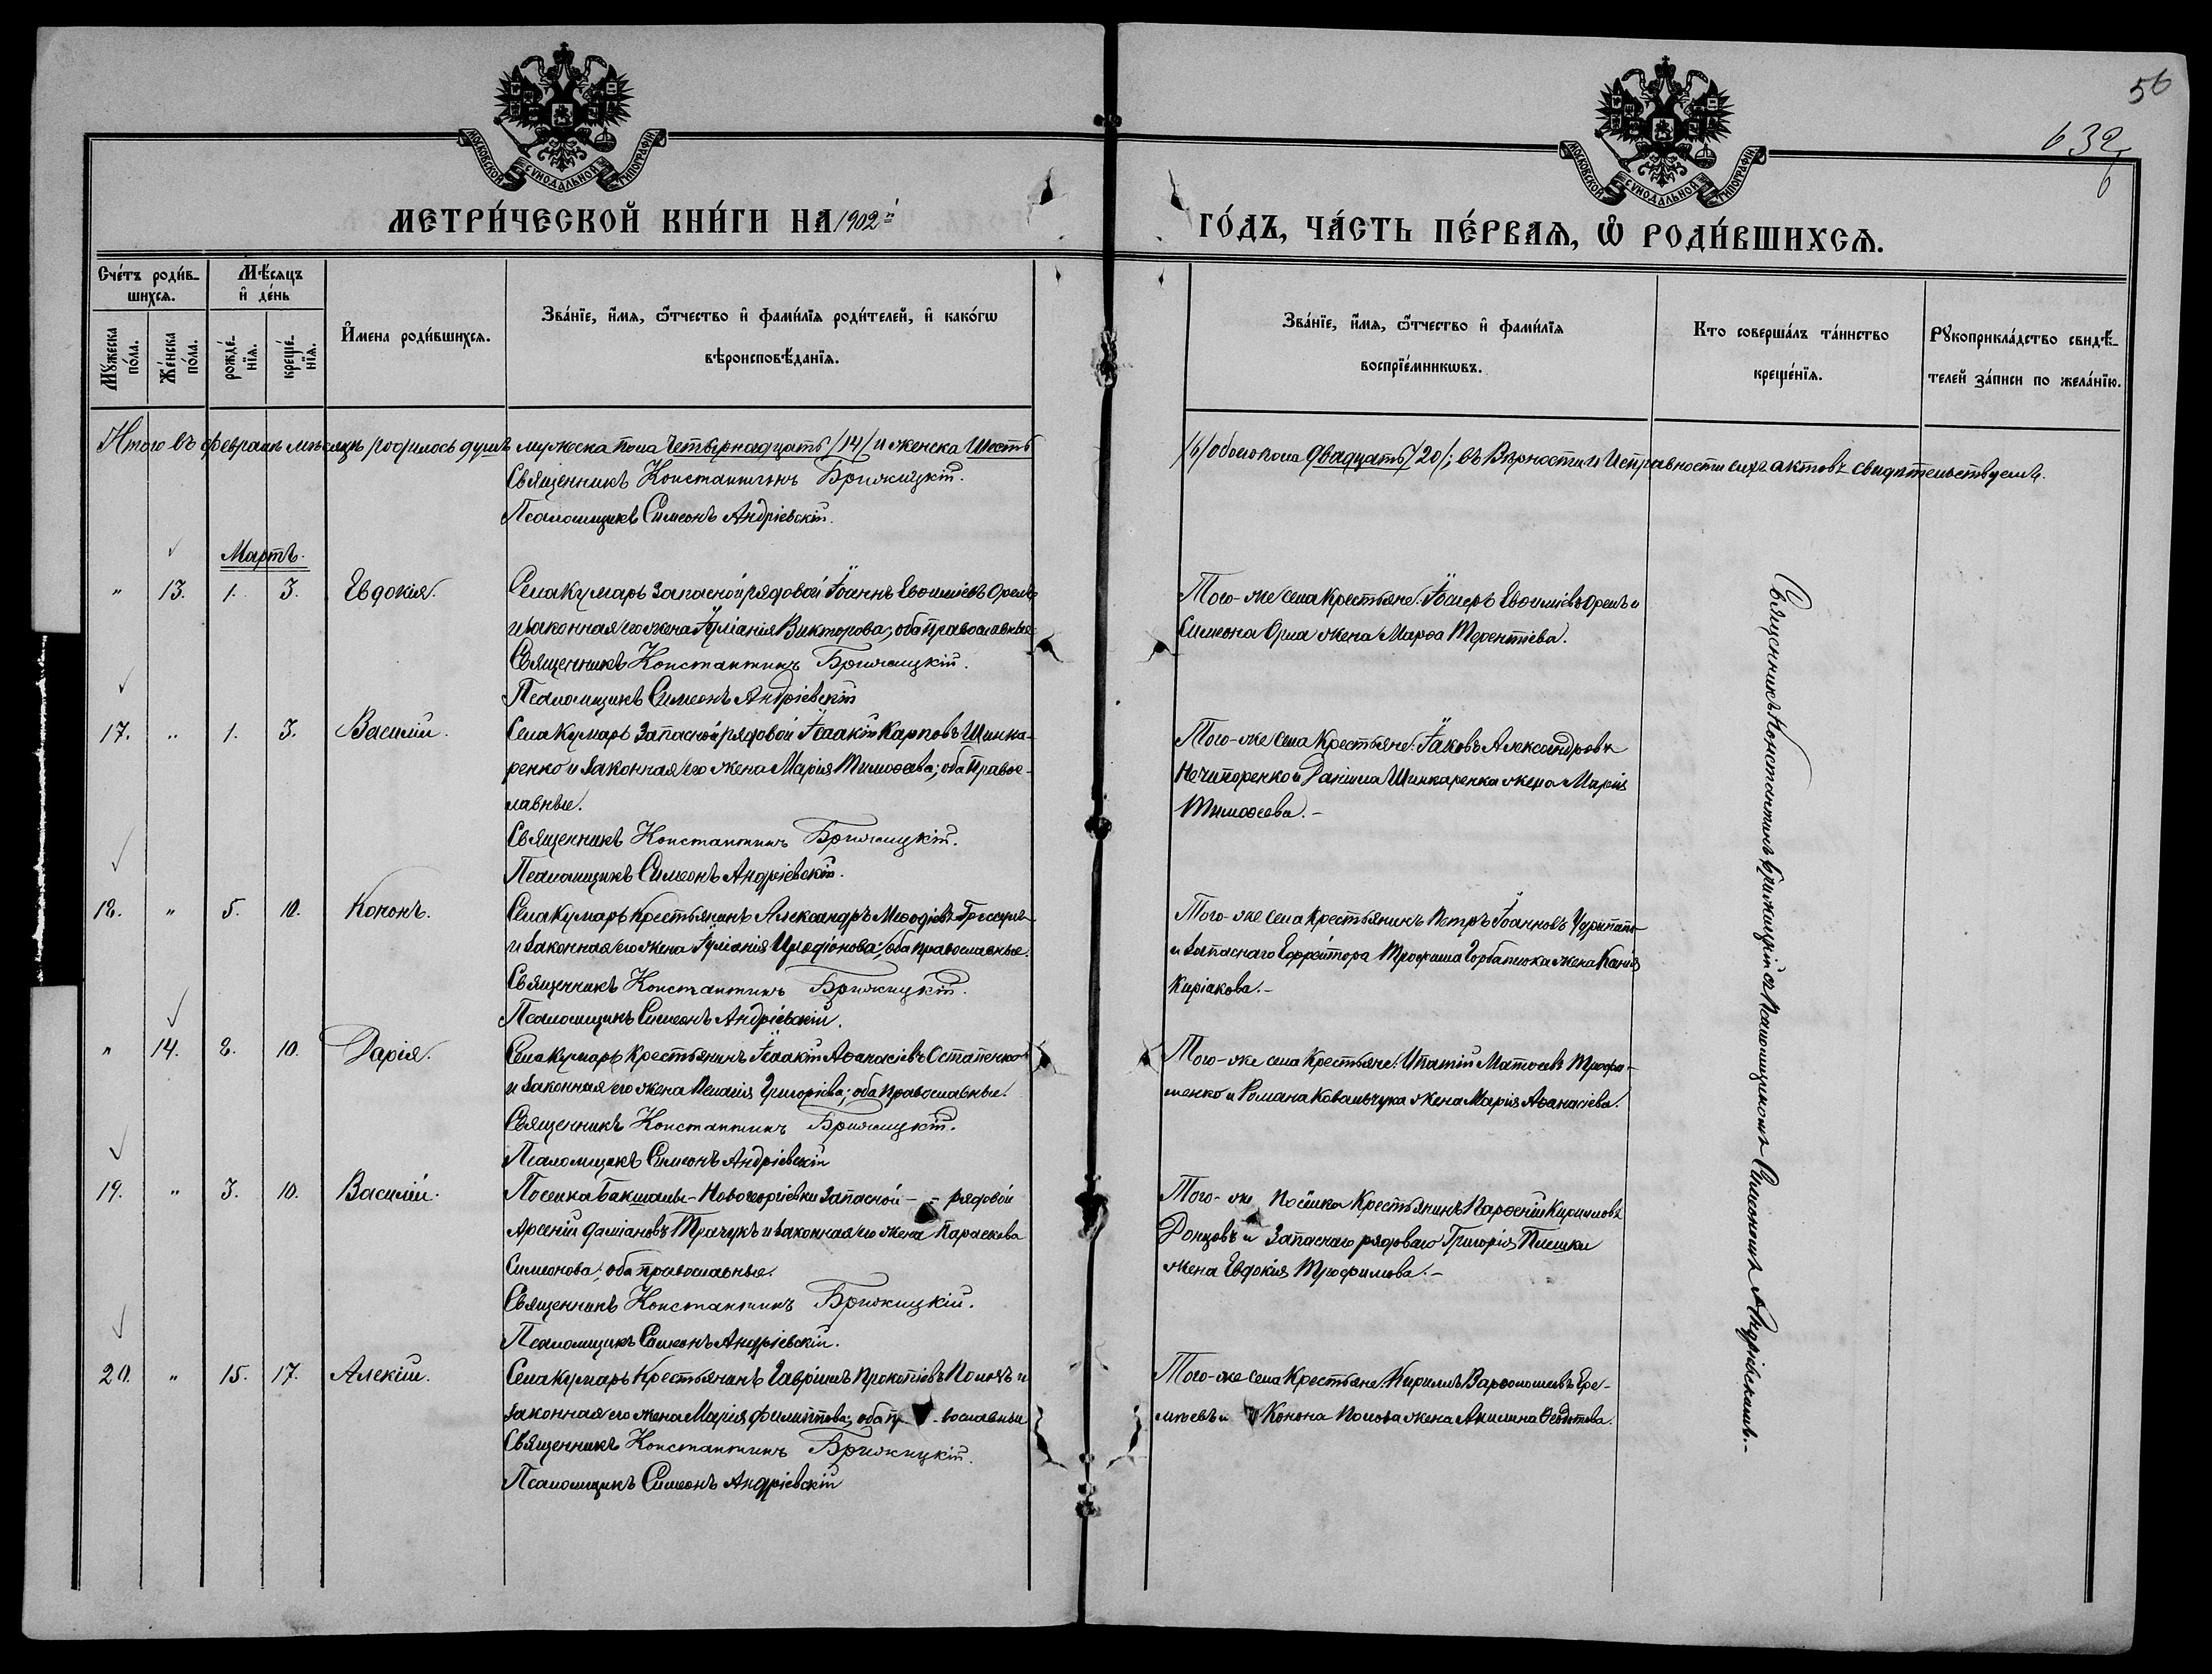 56
632
6
МОСКОВСКОЙ СУНОДАЛЬНОЙ ТИПОГРАФІИ
МОСКОВСКОЙ СУНОДАЛЬНОЙ ТИПОГРАФІИ
МЕТРИ́ЧЕСКОЙ КНИ́ГИ НА 1902й
ГО́ДЪ, ЧА́СТЬ ПЕ́РВАѦ, Ѡ РОДИ́ВШИХСѦ.
Сче́тъ роди́в-
шихсѧ.
Мѣ́сѧцъ
и҆ де́нь
Мꙋ́жеска по́ла.
Же́нска по́ла.
рожде́нїѧ.
креще́нїѧ.
И҆мена роди́вшихсѧ.
Зва́нїе, и҆́мѧ, ѻ҆́тчество и҆ фами́лїѧ роди́телей, и҆ како́гѡ
вѣроисповѣ́данїѧ.
Зва́нїе, и҆́мѧ, ѻ҆́тчество и҆ фами́лїѧ
воспрїе́мникѡвъ.
Кто соверша́лъ та́инство
креще́нїѧ.
Рꙋкоприкла́дство свидѣ́-
телей за́писи по жела́нїю.
Итого въ февралѣ мѣсяцѣ родилось душъ мужеска пола четырнадцать /14/ и женска Шесть
/6/ Обоего пола двадцать /20/; въ Вѣрности и Исправности сихъ актовъ свидѣтельствуемъ.
Священникъ Константинъ Брижицкій.
Псаломщикъ Симеонъ Андріевскій.
Мартъ.
" 13. 1. 3. Евдокія.
Села Кумаръ Запасной рядовой Іоаннъ Евѳиміевъ Орелъ
и законная его жена Іуліанія Викторова; оба православные
Священникъ Константинъ Брижицкій.
Псаломщикъ Симеонъ Андріевскій
Того-же села Крестьяне: Іосифъ Евѳиміевъ Орелъ и
Симеона Орла жена Марѳа Терентіева.
17. " 1. 3. Василій.
Села Кумаръ Запасной рядовой Ісаакій Карповъ Шинка-
ренко и законная его жена Марія Тимоѳеева; оба Правос-
лавные.
Священникъ Константинъ Брижицкій.
Псаломщикъ Симеонъ Андріевскій.
Того-же села Крестьяне: Іаковъ Александровъ
Нечипоренко и Даніила Шинкаренка жена Марія
Тимоѳеева.-
18. " 5. 10. Кононъ.
Села Кумаръ Крестьянинъ Александръ Меѳодіевъ
и законная его жена Іуліанія Иродіонова; оба православные.
Священникъ Константинъ Брижицкій.
Псаломщикъ Симеонъ Андріевскій.
Того-же села Крестьянинъ Петръ Іоанновъ
и запаснаго Ефрейтора Трофима Горбатюка жена
Киріакова.-
" 14. 8. 10. Дарія.
Села Кумаръ Крестьянинъ Ісаакій Аѳанасіевъ Остапенко
и законная его жена Пелагія Григоріева; оба Православные.
Священникъ Константинъ Брижицкій.
Псаломщикъ Симеонъ Андріевскій
Того-же села Крестьяне: Ипатій Матѳеевъ Трофи-
менко и Романа Ковальчука жена Марія Аѳанасіева.
19. " 3. 10. Василій.
Поселка Бакшалы-Новогеоргіевки Запасной - - рядовой
Арсеній Даміановъ Ткачукъ и законная его жена Параскева
Симеонова; оба православные.
Священникъ Константинъ Брижицкій.
Псаломщикъ Симеонъ Андріевскій.
Того-же Посёлка Крестьянинъ Парѳеній Кирилловъ
Донцовъ и Запаснаго рядоваго Григорія Плешки
жена Евдокія Трофимова.-
20. " 15. 17. Алексій.
Села Кумаръ Крестьянинъ Гавріилъ Прокопіевъ и
законная его жена Марія Филиппова; оба пр вославные
Священникъ Константинъ Брижицкій.
Псаломщикъ Симеонъ Андріевскій
Того-же села Крестьяне: Кириллъ Варѳоломеевъ Ере-
мѣевъ и Конона жена Акилина Ѳеодотова.
Священникъ Константинъ Брижицкій съ Псаломщикомъ Симеономъ Андріевскимъ.-